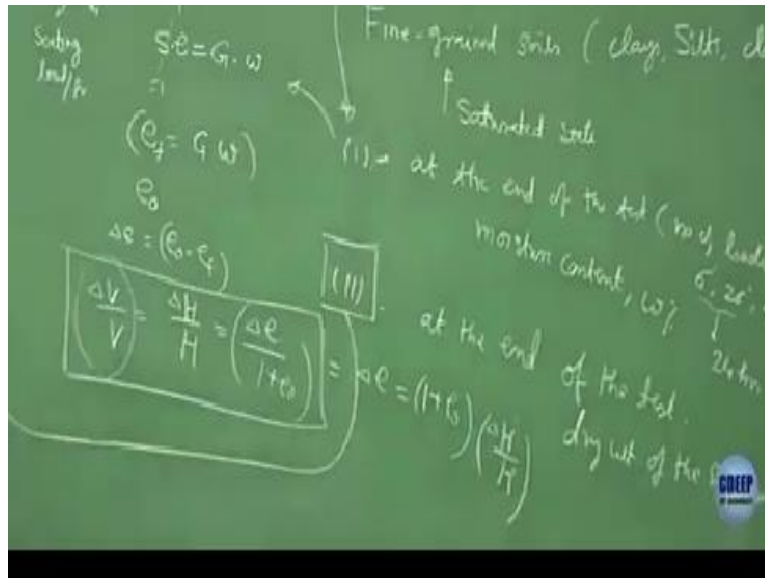 Seating
load/pr
Se = G. w
=1
(e_f = G w)
e_0
Δe = (e_0 - e_f)
(ΔV/V) = ΔH/H = (Δe/1+e_0) = Δe = (1+e_0) (ΔH/H)
Fine-grained soils ( clays, Silts, cl
Saturated state
(I) → at the end of the test ( no of loadi
moisture content, w%
σ, 2σ,
24 hrs
(II) . at the end of the test.
dry wt of the S
CDEEP